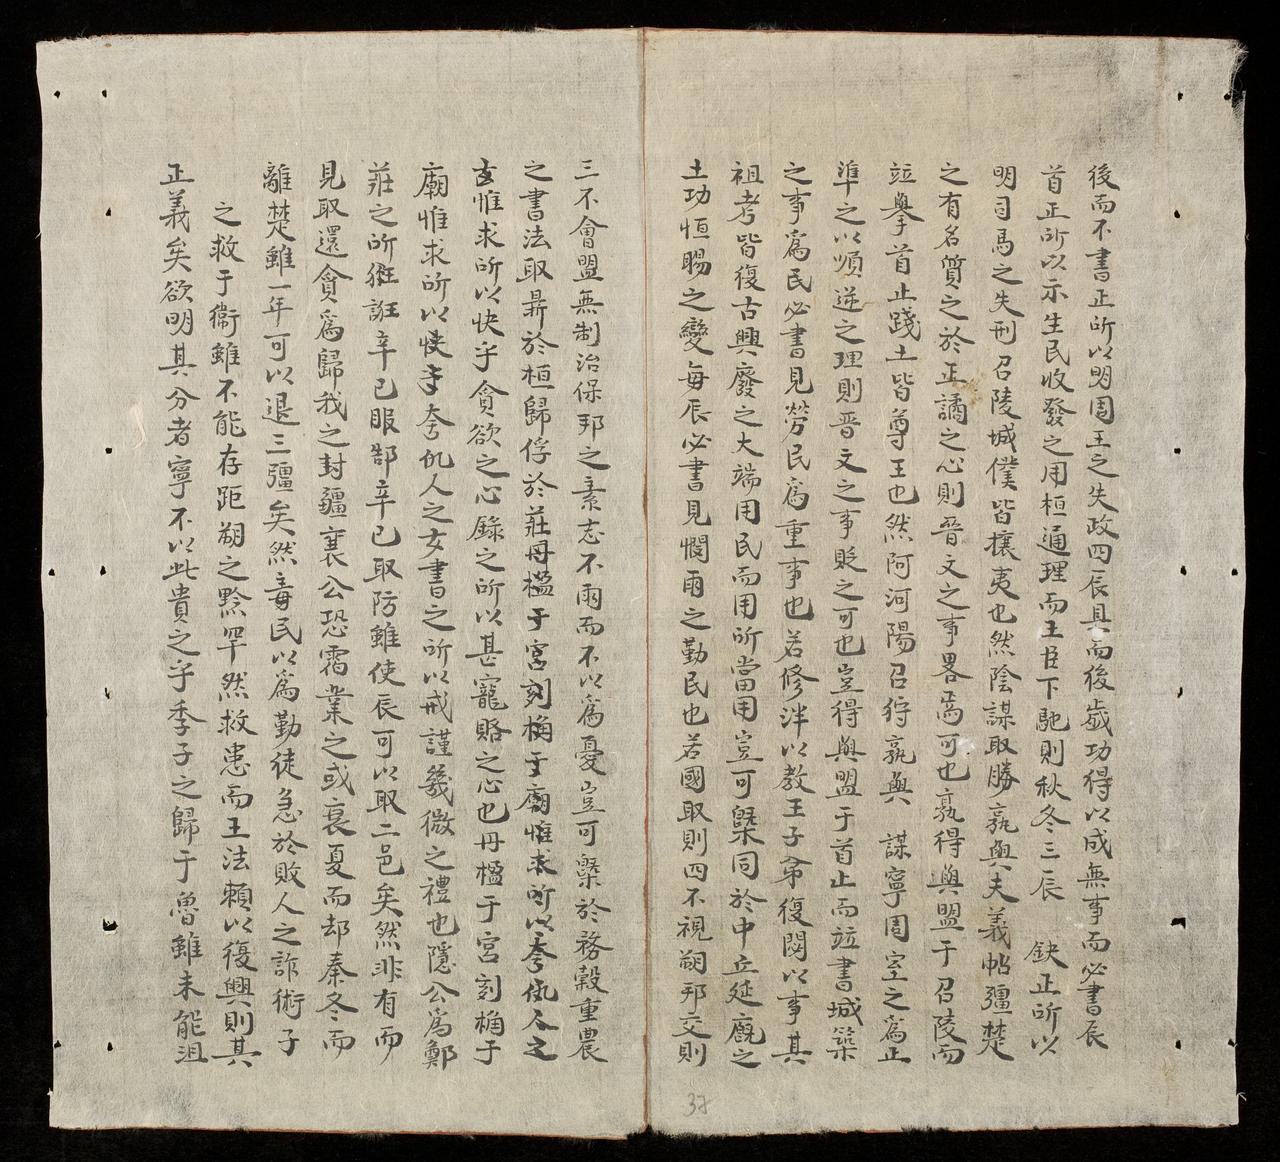 後而不書正所以明周王之失政四辰具而後歲功得以成無事而必書辰
首正所以示生民收發之用桓通理而王臣下馳則秋冬三辰 缺正所以
明司馬之失刑召陵城僕皆攘夷也然陰謀取勝孰與夫義帖彊楚
之有名質之於正譎之心則晋文之事畧焉可也孰得與盟于召陵而
竝舉首止踐土皆尊王也然阿河陽召狩孰與 謀寧周室之爲正
準之以順逆之理則晋文之事貶之可也豈得與盟于首止而竝書城築
之事爲民必書見勞民爲重事也若修泮以教王子弟復閟以事其
祖考皆復古興廢之大端用民而用所當用豈可槩同於中丘延廐之
土功恒暘之變每辰必書見憫雨之勤民也若國取則四不視朔邦交則
三不會盟無制治保邦之素志不雨而不以爲憂豈可槩於務穀重農
之書法取鼎於桓歸俘於莊丹楹于宮刻桷于廟惟求所以夸仇人之
玄惟求所以快乎貪欲之心錄之所以甚寵賂之心也丹楹于宮刻桷于
廟惟求所以快乎夸仇人之女書之所以戒謹幾微之禮也隱公爲鄭
莊之所誑辛巳服郜辛巳取防雖使辰可以取二邑矣然非有而
見取還貪爲歸我之封疆襄公恐霸業之或衰夏而却秦冬而
離楚雖一年可以退三彊矣然毒民以爲勤徒急於敗人之詐術子
之救于衞雖不能存距朔之黔牟然救患而王法賴以復興則其
正義矣欲明其分者寧不以此貴之乎季子之歸于魯雖未能沮
37